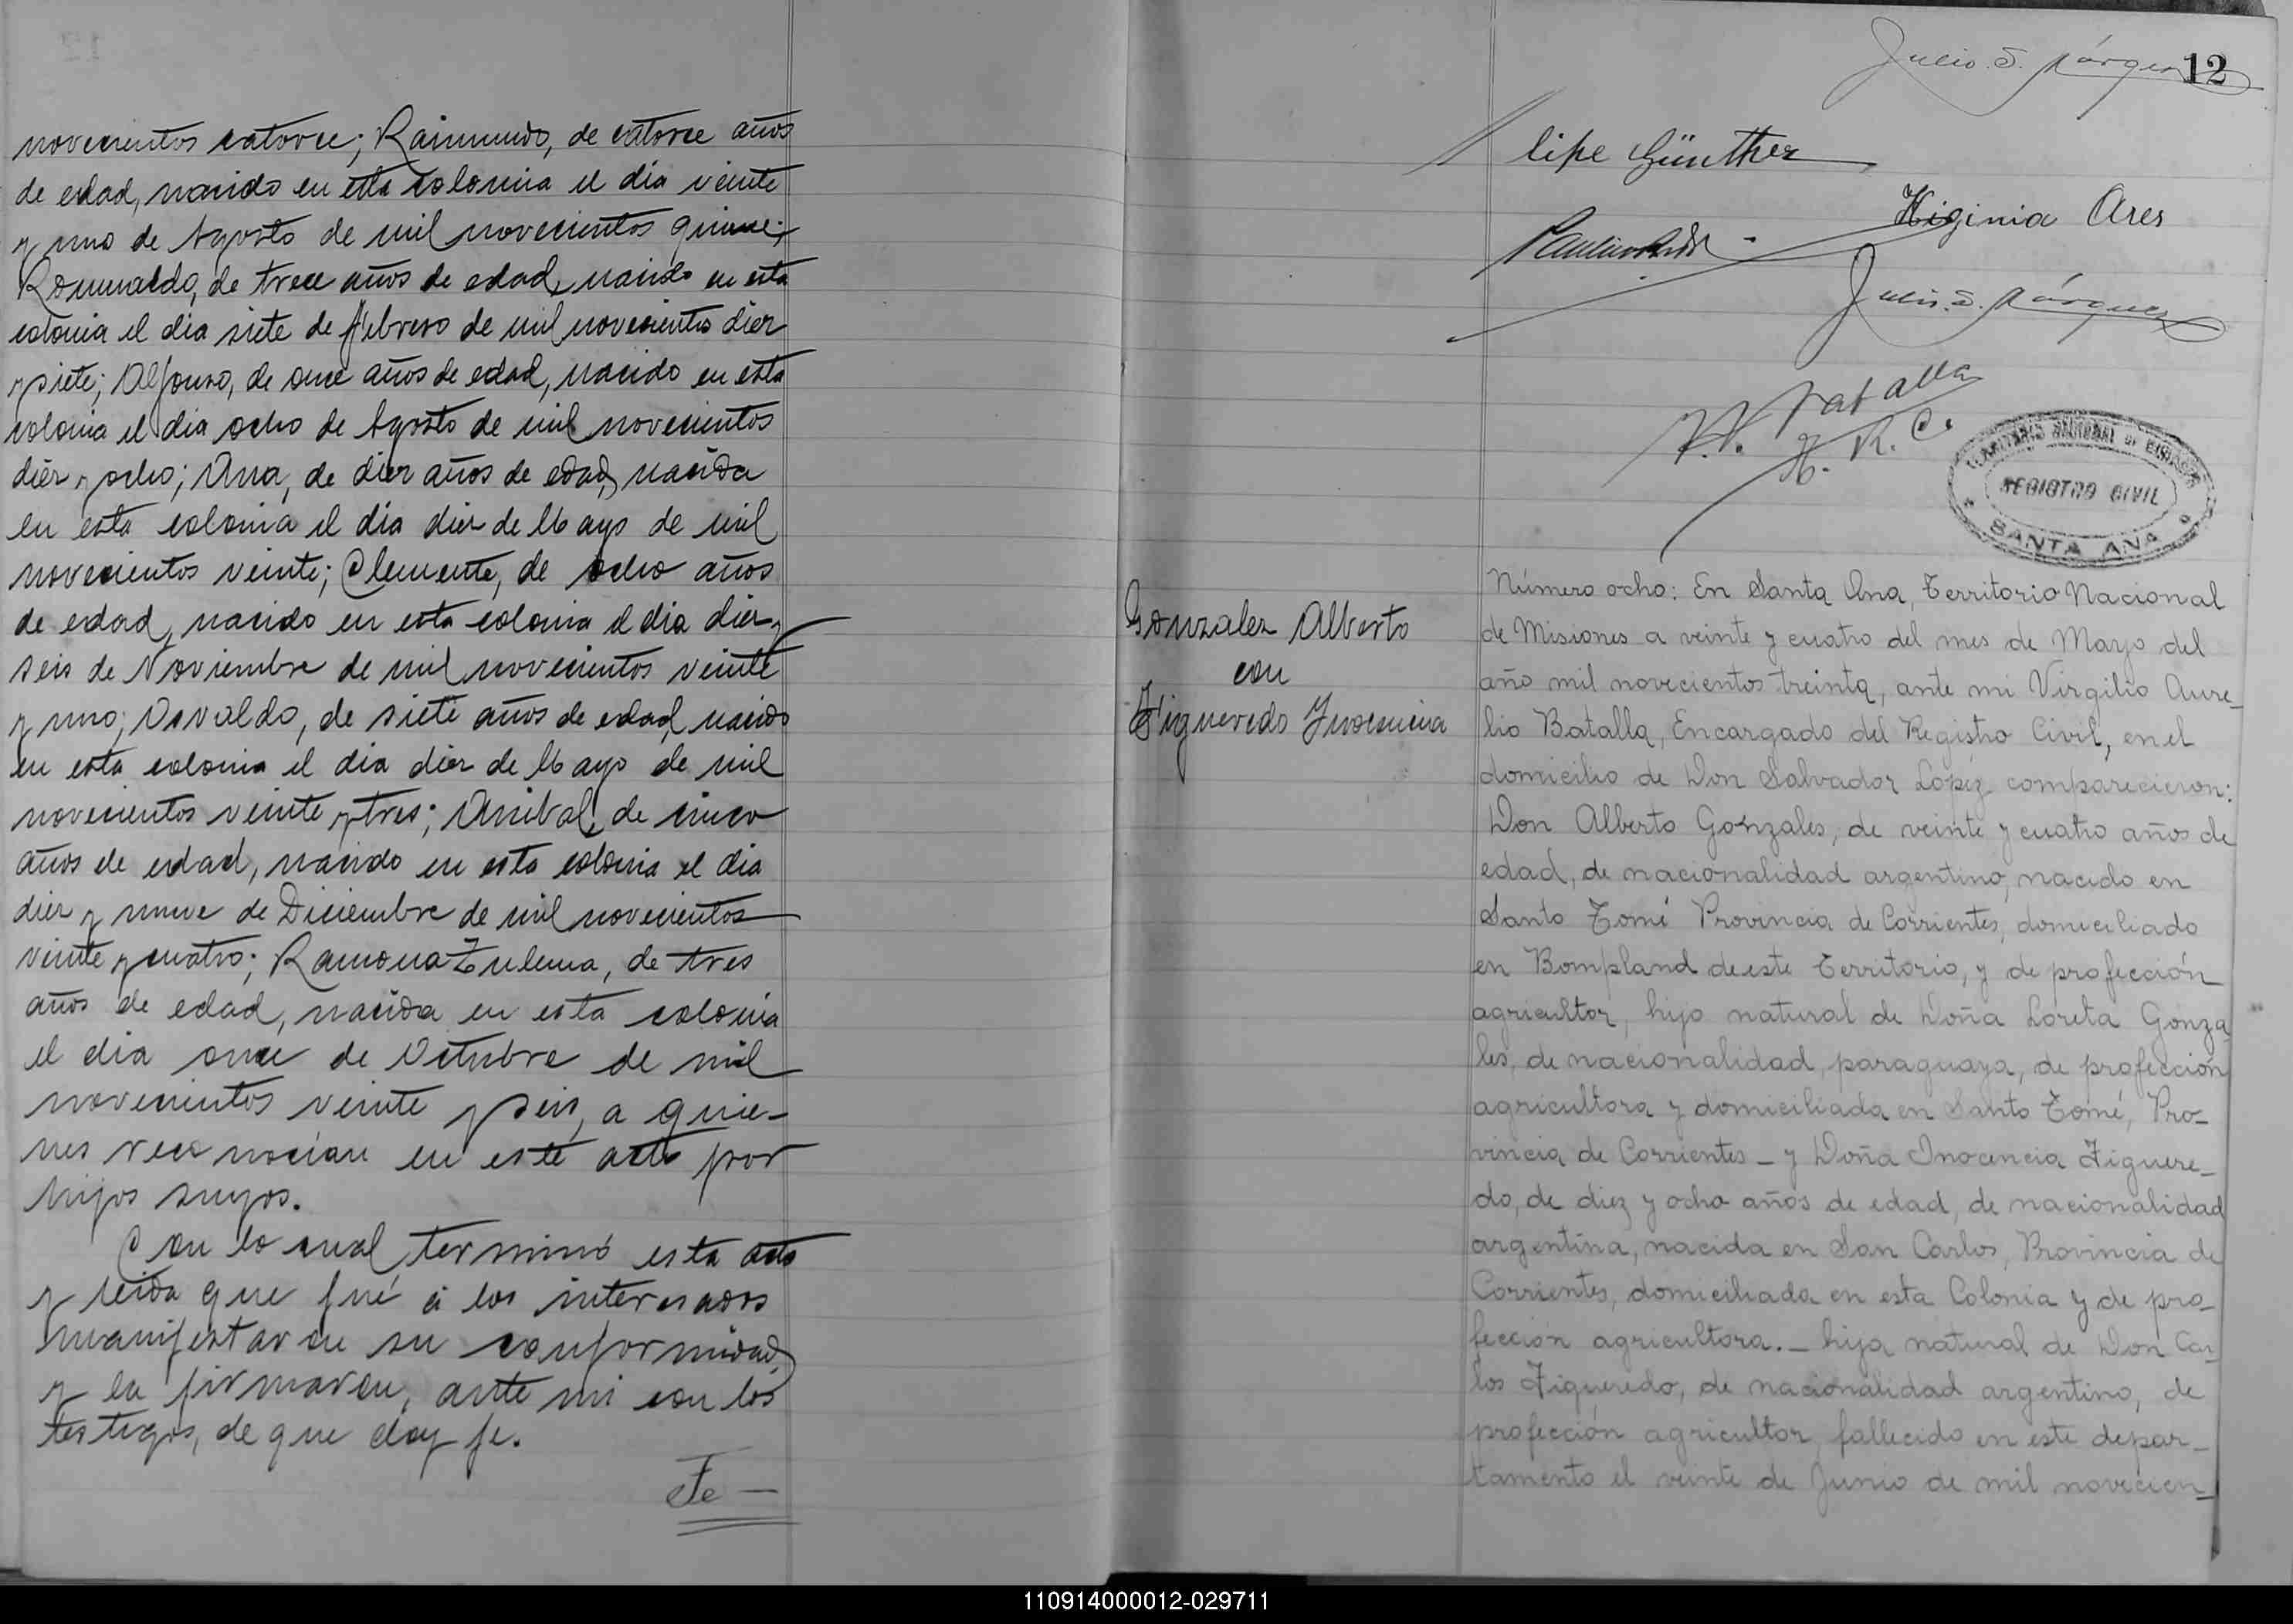 novecientos catorce; Raimundo, de catorce años
de edad, nacido en esta colonia el dia veinte
y uno de Agosto de mil novecientos quince;
Romualdo, de trece años de edad, nacido en esta
colonia el dia siete de Febrero de mil novecientos diez
y siete; Alfonso, de once años de edad, nacido en esta
colonia el dia ocho de Agosto de mil novecientos
diez y ocho; Ana, de diez años de edad, nacida
en esta colonia el dia diez de Mayo de mil
novecientos veinte; Clemente, de ocho años
de edad, nacido en esta colonia el dia diez y
seis de Noviembre de mil novecientos veinte
y uno; Osvaldo, de siete años de edad, nacido
en esta colonia el dia diez de Mayo de mil
novecientos veinte y tres; Anibal, de cinco
años de edad, nacido en esta colonia el dia
diez y nueve de Diciembre de mil novecientos
veinte y cuatro; Ramona Zulema, de tres
años de edad, nacida en esta colonia
el dia once de Octubre de mil
novecientos veinte y seis, a quie-
nes reconocian en este acto por
hijos suyos.
Con lo cual terminó esta acta
y leida que fué á los interesados
manifestaron su conformidad,
y la firmaron, ante mi con los
testigos, de que doy fe.
Fe —
Julio S. Márquez
12
lipe Günther
Higinia Ares
Julio S. Márquez
V. A. Batalla
E. R. C.
TERRITORIO NACIONAL DE MISIONES
REGISTRO CIVIL
SANTA ANA
Gonzalez Alberto
con
Figueredo Inocencia
Número ocho: En Santa Ana, Territorio Nacional
de Misiones a veinte y cuatro del mes de Mayo del
año mil novecientos treinta, ante mi Virgilio Aure-
lio Batalla, Encargado del Registro Civil, en el
domicilio de Don Salvador López comparecieron:
Don Alberto Gonzales, de veinte y cuatro años de
edad, de nacionalidad argentino, nacido en
Santo Tomé Provincia de Corrientes, domiciliado
en Bompland de este Territorio, y de profección
agricultor, hijo natural de Doña Loreta Gonza
les, de nacionalidad paraguaya, de profección
agricultora y domiciliada en Santo Tomé, Pro-
vincia de Corrientes - y Doña Inocencia Figuere-
do, de diez y ocho años de edad, de nacionalidad
argentina, nacida en San Carlos, Provincia de
Corrientes, domiciliada en esta Colonia y de pro-
fección agricultora. - hija natural de Don Car
los Figueredo, de nacionalidad argentino, de
profección agricultor, fallecido en este depar-
tamento el veinte de Junio de mil novecien-
110914000012-029711